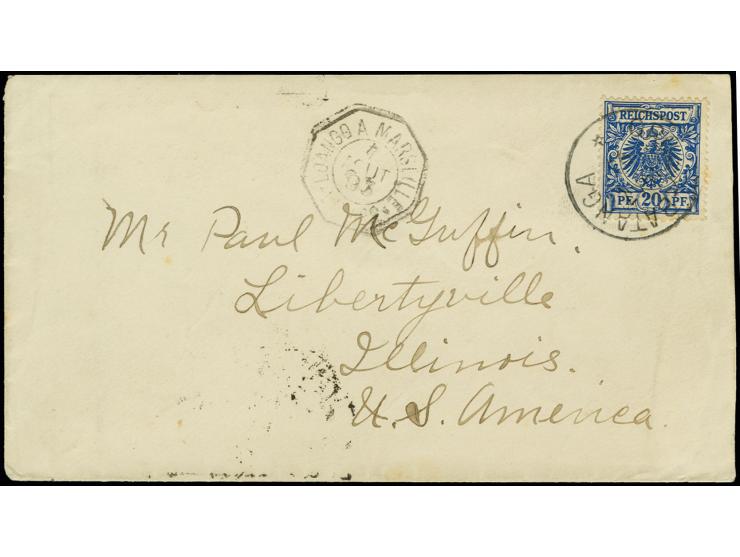 LOANGO A MARSEILLE
AOUT
93
REICHSPOST
PF. 20 PF.
BATANGA
Mr Paul McGuffin.
Libertyville
Illinois.
U. S. America.